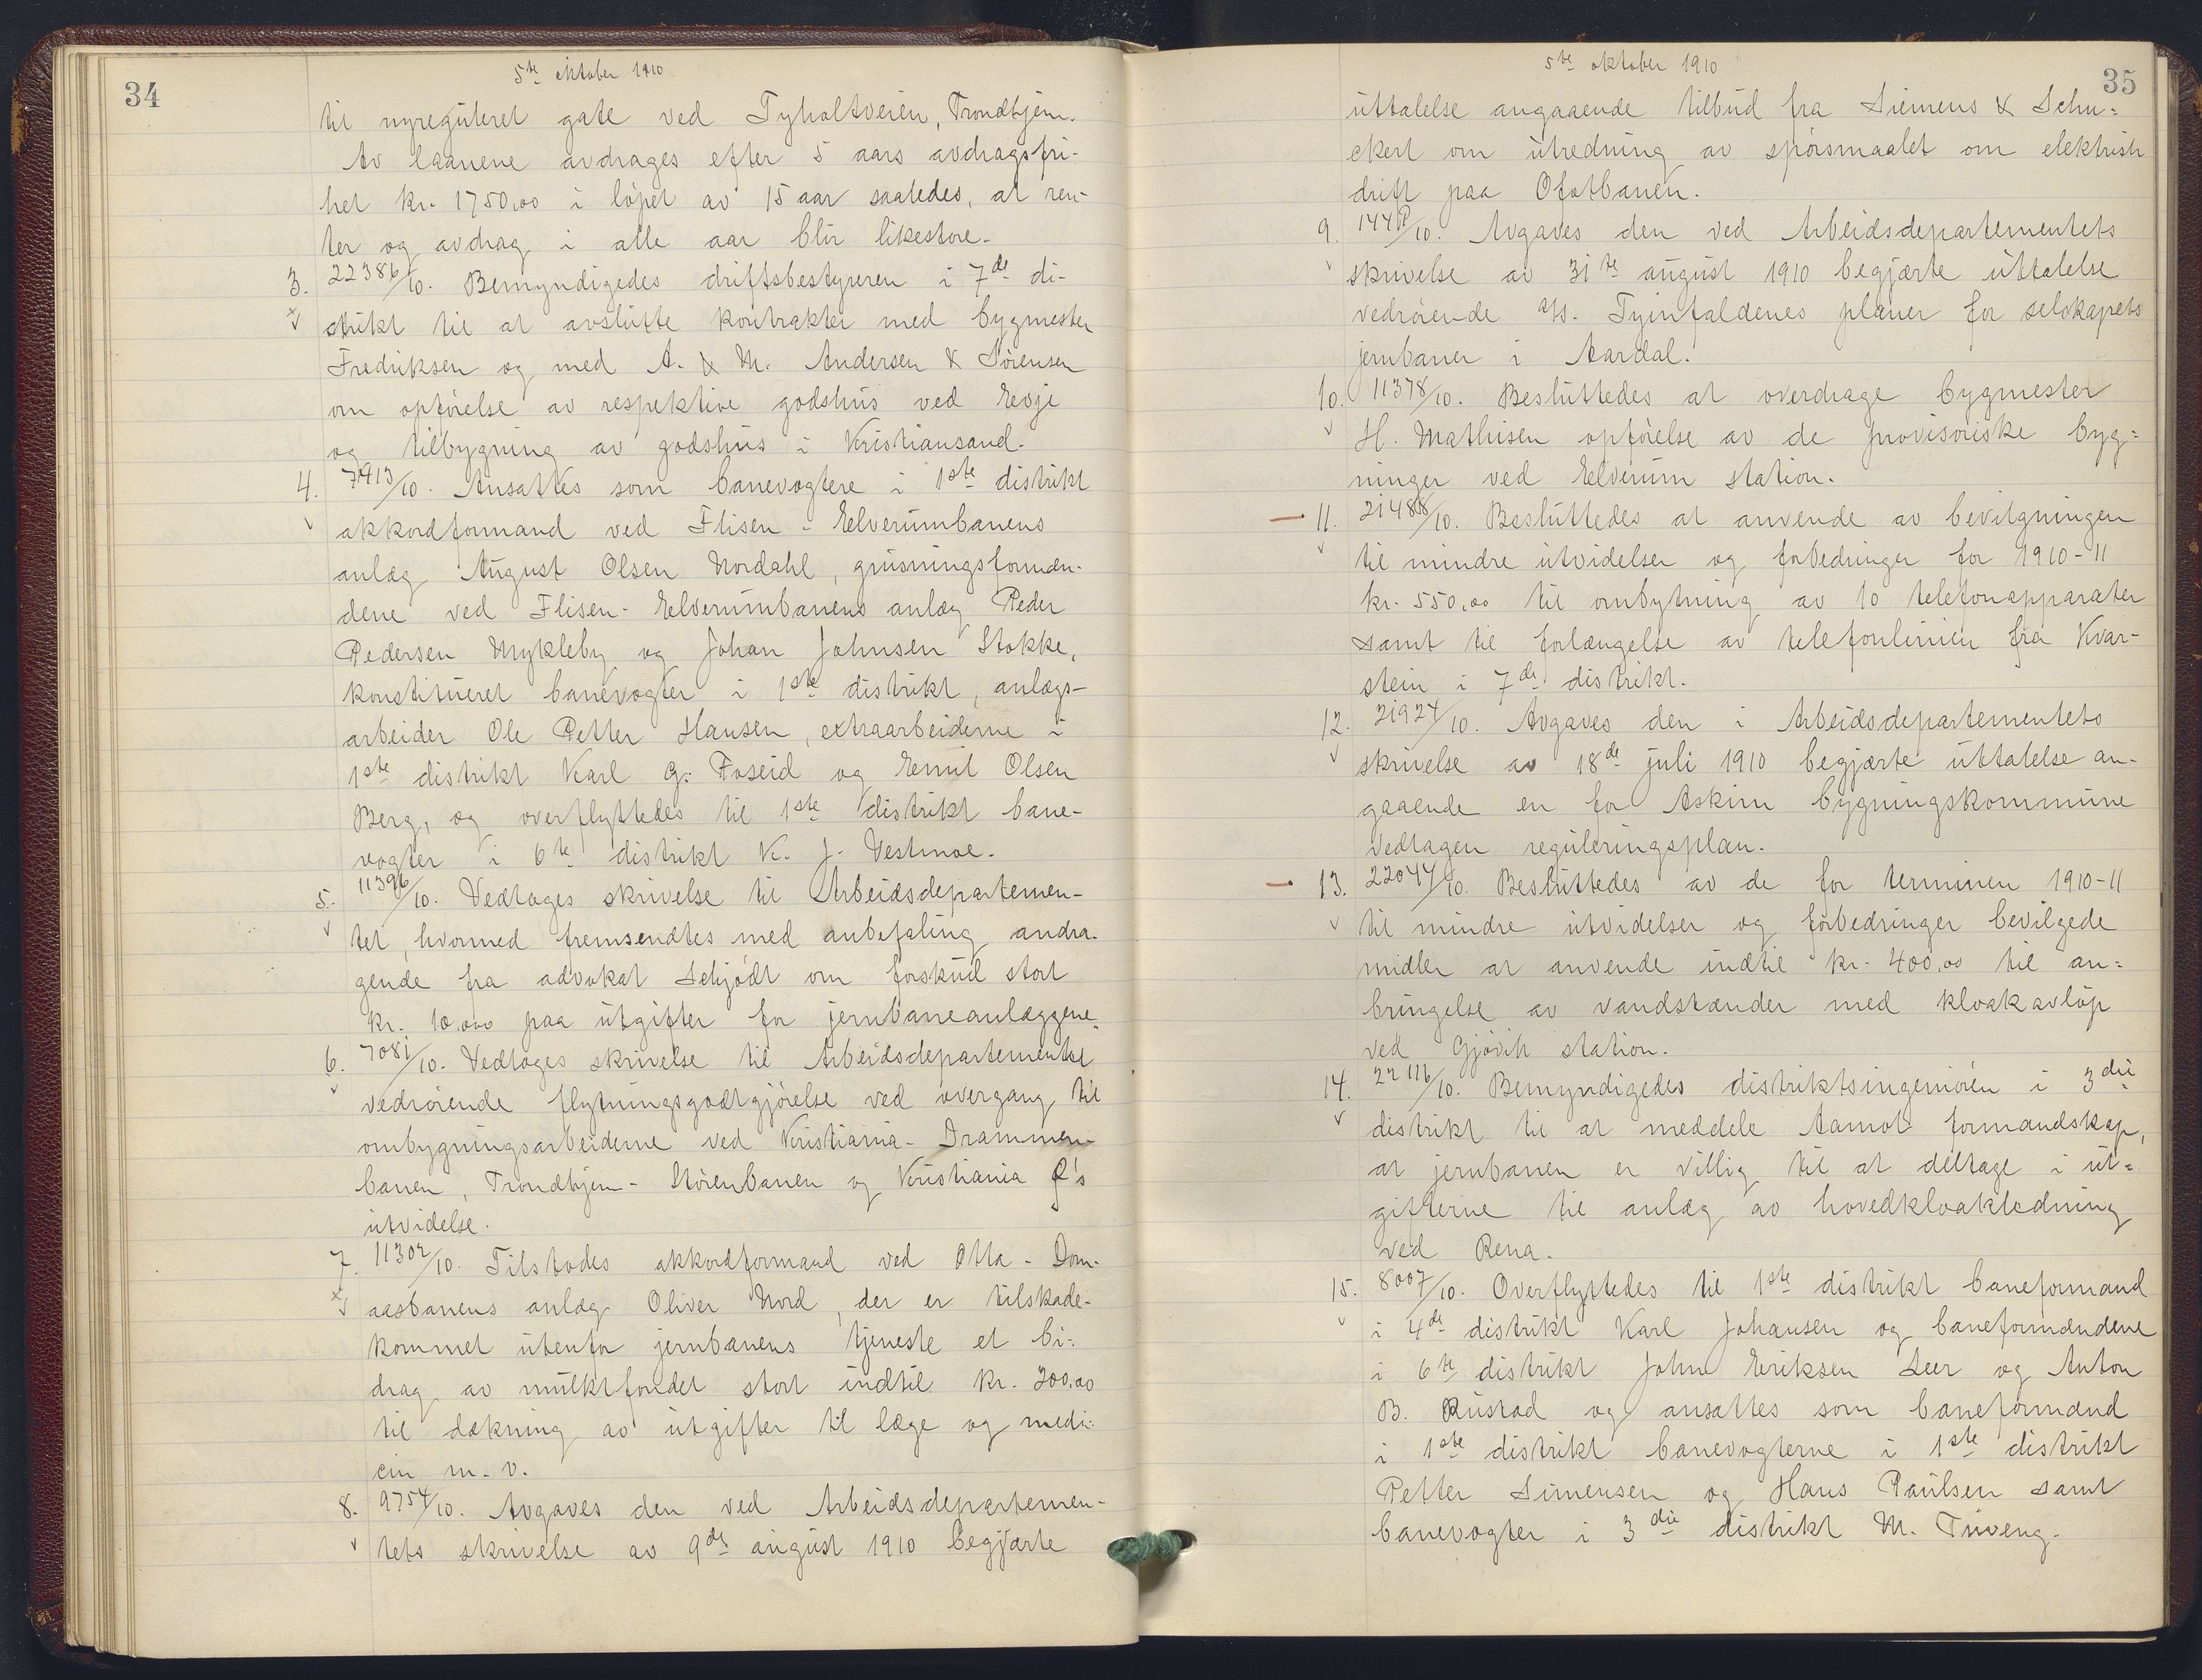 34
5te oktober 1910
til nyreguleret gate ved Tyholtveien, Trondhjem.
Av laanene avdrages efter 5 aars avdragsfri-
het kr. 1750,00 i løpet av 15 aar saaledes, at ren-
ter og avdrag i alle aar blir likestore.
3. 22386/10. Bemyndigedes driftsbestyreren i 7de di-
strikt til at avslutte kontrakter med bygmester
Fredriksen og med A. & M. Andersen & Sørensen
om opførelse av respektive godshus ved Evje
og tilbygning av godshus i Kristiansand.
4. 7913/10. Ansattes som banevogtere i 1ste distrikt
akkordformand ved Flisen-Elverumbanens
anlæg August Olsen Nordahl, grusningsformæn-
dene ved Flisen-Elverumbanens anlæg Peder
Pedersen Mykleby og Johan Johnsen Stokke,
konstitueret banevogter i 1ste distrikt, anlægs-
arbeider Ole Petter Hansen, extraarbeiderne i
1ste distrikt Karl G. Foseid og Emil Olsen
Berg, og overflyttedes til 1ste distrikt bane-
vogter i 6te distrikt K. J. Vestmoe.
5. 11396/10. Vedtoges skrivelse til Arbeidsdepartemen-
tet, hvormed fremsendtes med anbefaling andra-
gende fra advokat Schjødt om forskud stort
kr. 10,000 paa utgifter for jernbaneanlæggene.
6. 7081/10. Vedtoges skrivelse til Arbeidsdepartementet
vedrørende flytningsgodtgjørelse ved overgang til
ombygningsarbeiderne ved Kristiania-Drammen-
banen, Trondhjem-Størenbanen og Kristiania Ø's
utvidelse.
7. 11302/10. Tilstodes akkordformand ved Otta-Dom-
aasbanens anlæg Oliver Nord, der er tilskade-
kommet utenfor jernbanens tjeneste et bi-
drag av mulktfondet stort indtil kr. 200,00
til dækning av utgifter til læge og medi-
cin m. v.
8. 9754/10. Avgaves den ved Arbeidsdepartemen-
tets skrivelse av 9de august 1910 begjærte
35
5te oktober 1910
uttalelse angaaende tilbud fra Siemens & Schu-
ckert om utredning av spørsmaalet om elektrisk
drift paa Ofotbanen.
9. 1448/10. Avgaves den ved Arbeidsdepartementets
skrivelse av 31te august 1910 begjærte uttalelse
vedrørende A/S. Tyinfaldenes planer for selskapets
jernbaner i Aardal.
10. 11378/10. Besluttedes at overdrage bygmester
H. Mathisen opførelse av de provisoriske byg-
ninger ved Elverum station.
11. 21488/10. Besluttedes at anvende av bevilgningen
til mindre utvidelser og forbedringer for 1910-11
kr. 550,00 til ombytning av 10 telefonapparater
samt til forlængelse av telefonlinien fra Kvar-
stein i 7de distrikt.
12. 21924/10. Avgaves den i Arbeidsdepartementets
skrivelse av 18de juli 1910 begjærte uttalelse an-
gaaende en for Askim bygningskommune
vedtagen reguleringsplan.
13. 22044/10. Besluttedes av de for terminen 1910-11
til mindre utvidelser og forbedringer bevilgede
midler at anvende indtil kr. 400,00 til an-
bringelse av vandstænder med kloakavløp
ved Gjøvik station.
14. 22116/10. Bemyndigedes distriktsingeniøren i 3die
distrikt til at meddele Aamot formandskap,
at jernbanen er villig til at deltage i ut-
gifterne til anlæg av hovedkloakledning
ved Rena.
15. 8007/10. Overflyttedes til 1ste distrikt baneformand
i 4de distrikt Karl Johansen og baneformændene
i 6te distrikt John Eriksen Leer og Anton
B. Rustad og ansattes som baneformænd
i 1ste distrikt banevogterne i 1ste distrikt
Petter Simensen og Hans Paulsen samt
banevogter i 3die distrikt M. Tuveng.